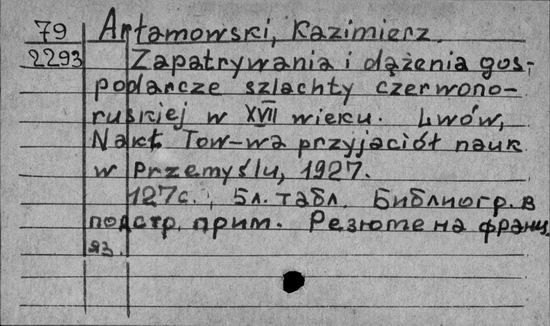 79 Artamowski, Kazimierz.
2293 Zapatrywania i dążenia gos-
podarcze szlachty czerwono-
ruskiej w XVII wieku. Lwów,
Nakł. Tow-wa przyjaciół nauk
w Przemyślu, 1927.
127с., 5л. табл. Библиогр. в
подстр. прим. Резюме на франц.
яз.